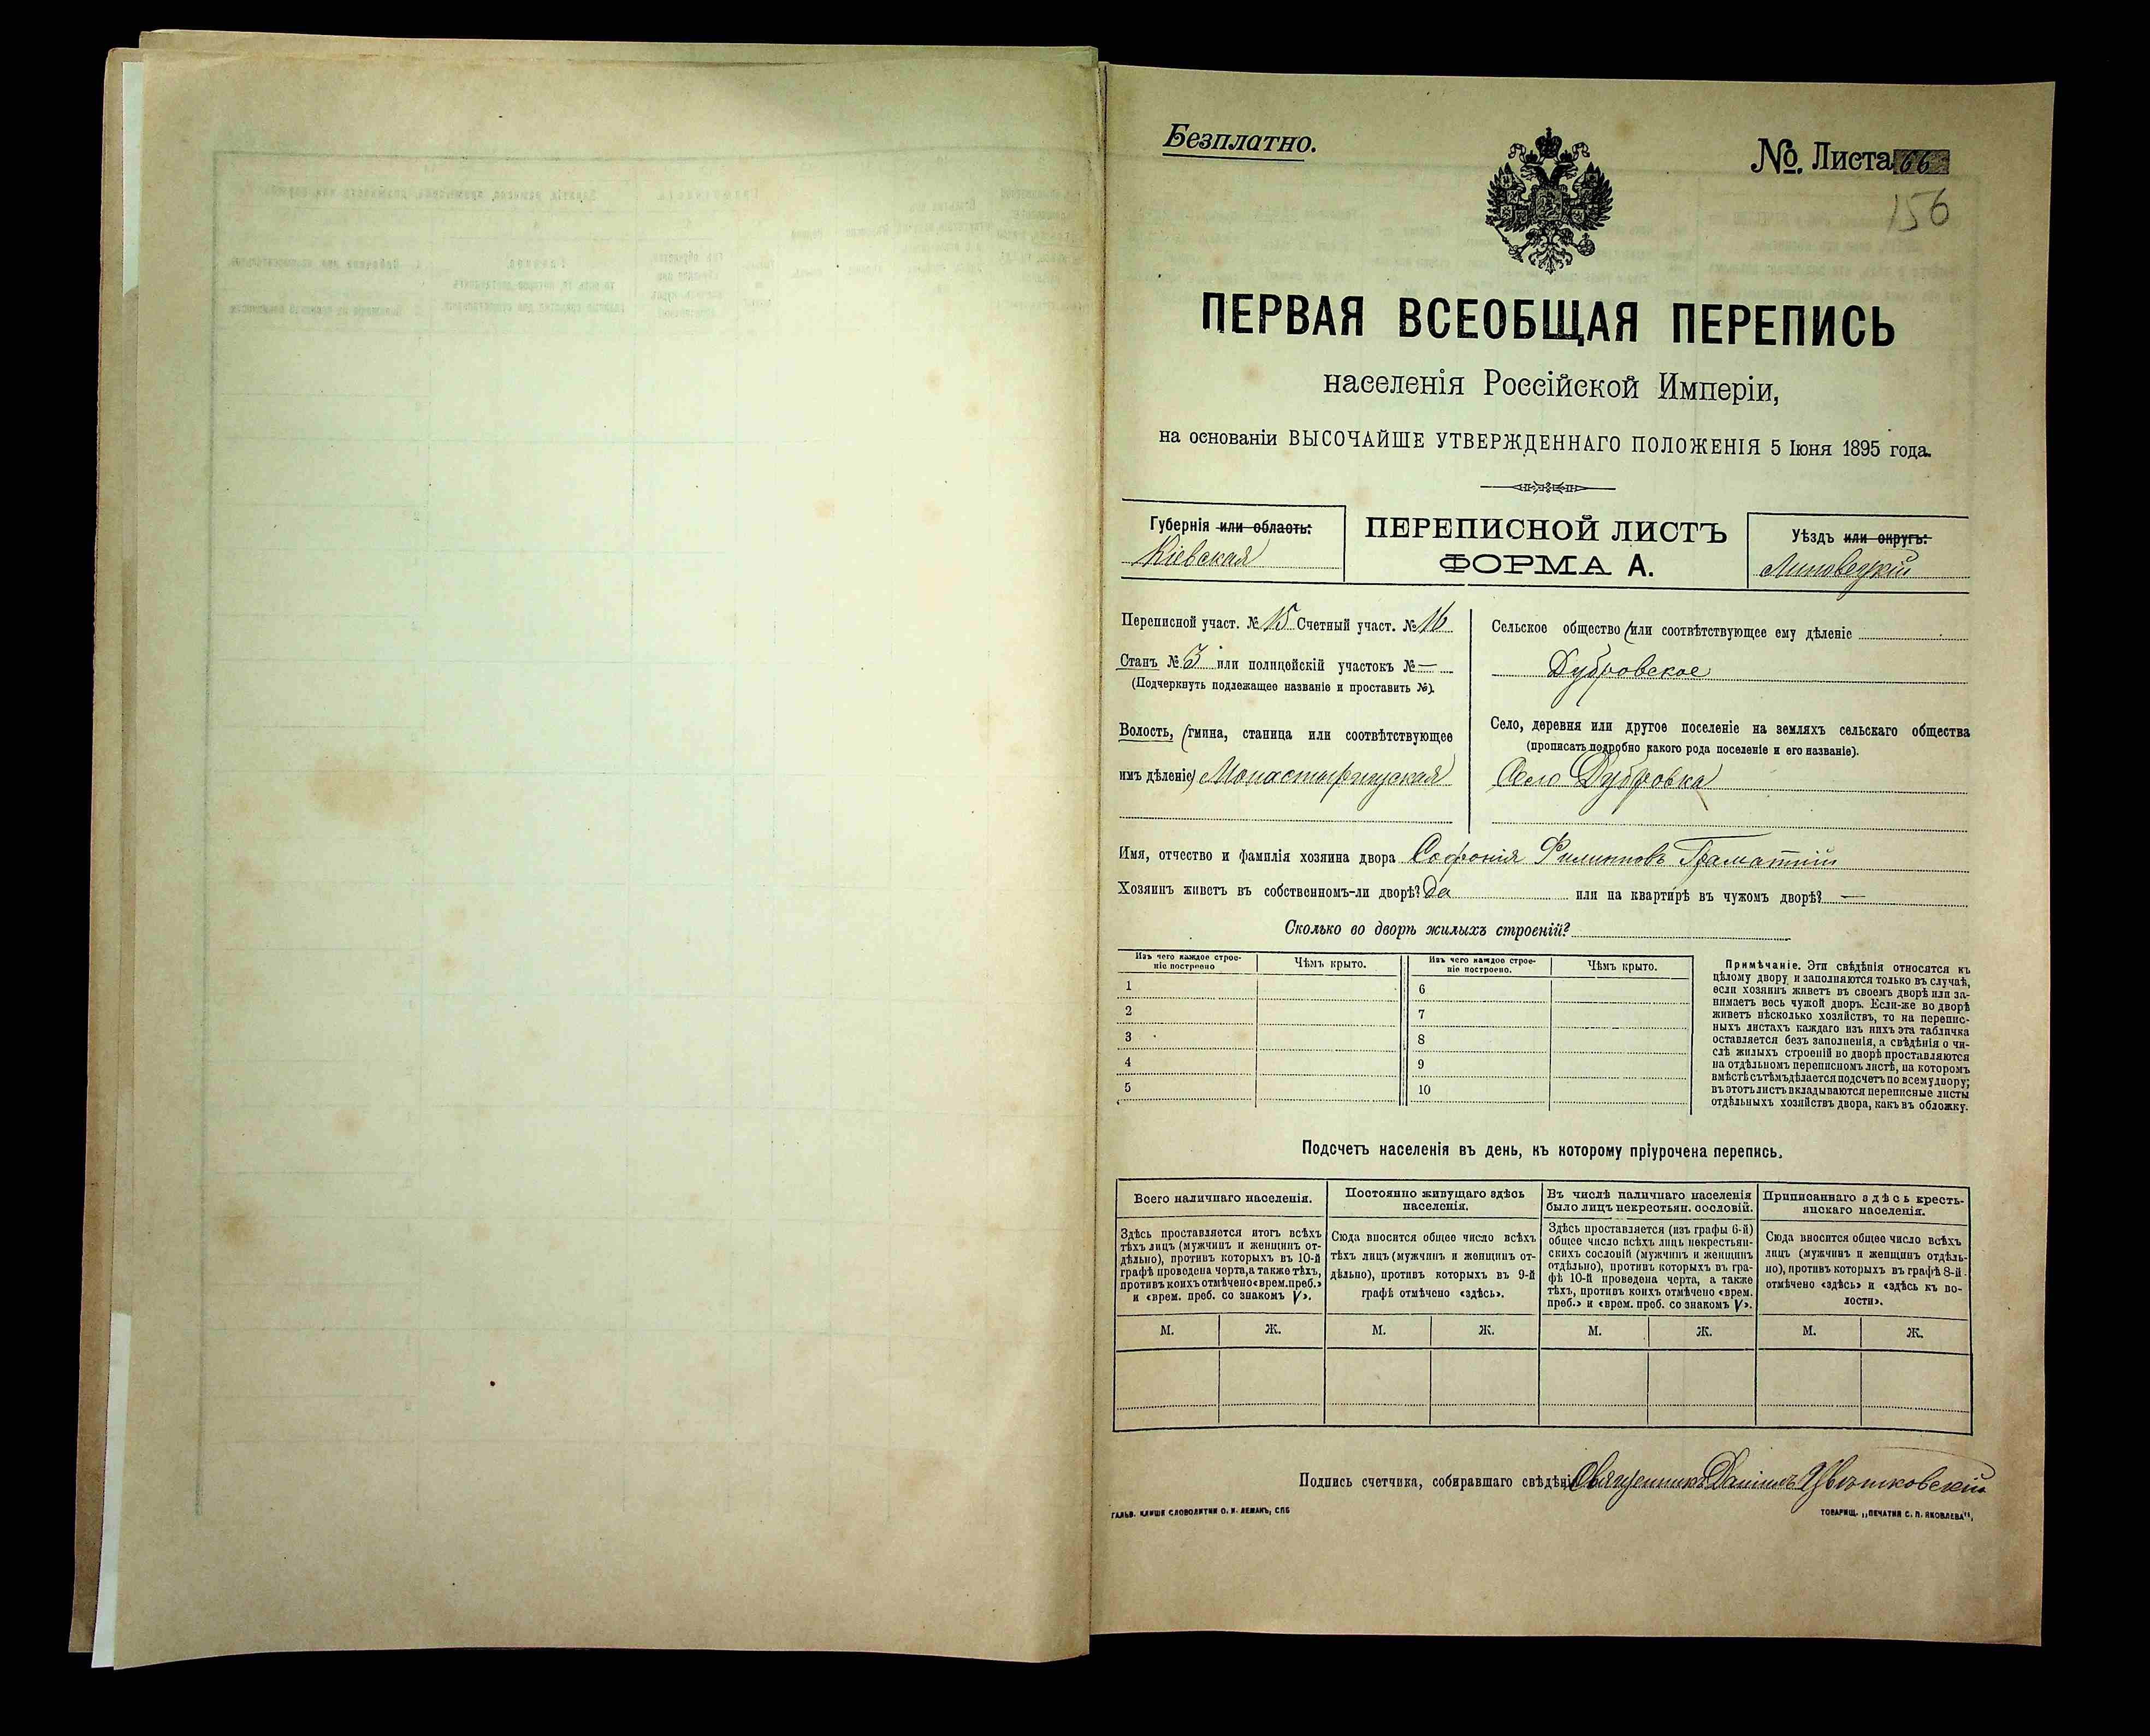 Безплатно.
№. Листа 66
156
ПЕРВАЯ ВСЕОБЩАЯ ПЕРЕПИСЬ
населенія Россійской Имперіи,
на основаніи ВЫСОЧАЙШЕ УТВЕРЖДЕННАГО ПОЛОЖЕНІЯ 5 Іюня 1895 года.
Губернія или область:
Кіевская
ПЕРЕПИСНОЙ ЛИСТЪ
ФОРМА А.
Уѣздъ или округъ:
Липовецкій
Переписной участ. № 15 Счетный участ. № 16
Станъ № 3 или полицейскій участокъ № —
(Подчеркнуть подлежащее названіе и проставить №).
Волость, (гмина, станица или соотвѣтствующее
имъ дѣленіе) Монастырищская
Сельское общество (или соотвѣтствующее ему дѣленіе
Дубровское
Село, деревня или другое поселеніе на земляхъ сельскаго общества
(прописать подробно какого рода поселеніе и его названіе).
Село Дубровка
Имя, отчество и фамилія хозяина двора Софонія Филипповъ Граматній
Хозяинъ живетъ въ собственномъ-ли дворѣ? Да или на квартирѣ въ чужомъ дворѣ? —
Сколько во дворѣ жилыхъ строеній?
Изъ чего каждое строе-
ніе построено
Чѣмъ крыто.
Изъ чего каждое строе-
ніе построено.
Чѣмъ крыто.
1
6
2
7
3
8
4
9
5
10
Примѣчаніе. Эти свѣдѣнія относятся къ
цѣлому двору и заполняются только въ случаѣ,
если хозяинъ живетъ въ своемъ дворѣ или за-
нимаетъ весь чужой дворъ. Если-же во дворѣ
живетъ нѣсколько хозяйствъ, то на перепис-
ныхъ листахъ каждаго изъ нихъ эта табличка
оставляется безъ заполненія, а свѣдѣнія о чи-
слѣ жилыхъ строеній во дворѣ проставляются
на отдѣльномъ переписномъ листѣ, на которомъ
вмѣстѣ съ тѣмъ дѣлается подсчетъ по всему двору;
въ этотъ листъ вкладываются переписные листы
отдѣльныхъ хозяйствъ двора, какъ въ обложку.
Подсчетъ населенія въ день, къ которому пріурочена перепись.
Всего наличнаго населенія.
Здѣсь проставляется итогъ всѣхъ
тѣхъ лицъ (мужчинъ и женщинъ от-
дѣльно), противъ которыхъ въ 10-й
графѣ проведена черта, а также тѣхъ,
противъ коихъ отмѣчено «врем. преб.»
и «врем. преб. со знакомъ V».
Постоянно живущаго здѣсь
населенія.
Сюда вносится общее число всѣхъ
тѣхъ лицъ (мужчинъ и женщинъ от-
дѣльно), противъ которыхъ въ 9-й
графѣ отмѣчено «здѣсь».
Въ числѣ наличнаго населенія
было лицъ некрестьян. сословій.
Здѣсь проставляется (изъ графы 6-й)
общее число всѣхъ лицъ некрестьян-
скихъ сословій (мужчинъ и женщинъ
отдѣльно), противъ которыхъ въ гра-
фѣ 10-й проведена черта, а также
тѣхъ, противъ коихъ отмѣчено «врем.
преб.» и «врем. преб. со знакомъ V».
Приписаннаго здѣсь кресть-
янскаго населенія.
Сюда вносится общее число всѣхъ
лицъ (мужчинъ и женщинъ отдѣль-
но), противъ которыхъ въ графѣ 8-й
отмѣчено «здѣсь» и «здѣсь къ во-
лости».
М. Ж. М. Ж. М. Ж. М. Ж.
Подпись счетчика, собиравшаго свѣдѣнія Священникъ Даніилъ Цвѣтковскій
ГАЛЬВ. КЛИШЕ СЛОВОЛИТНИ О. И. ЛЕМАНЪ, СПБ
ТОВАРИЩ. „ПЕЧАТНЯ С. П. ЯКОВЛЕВА",